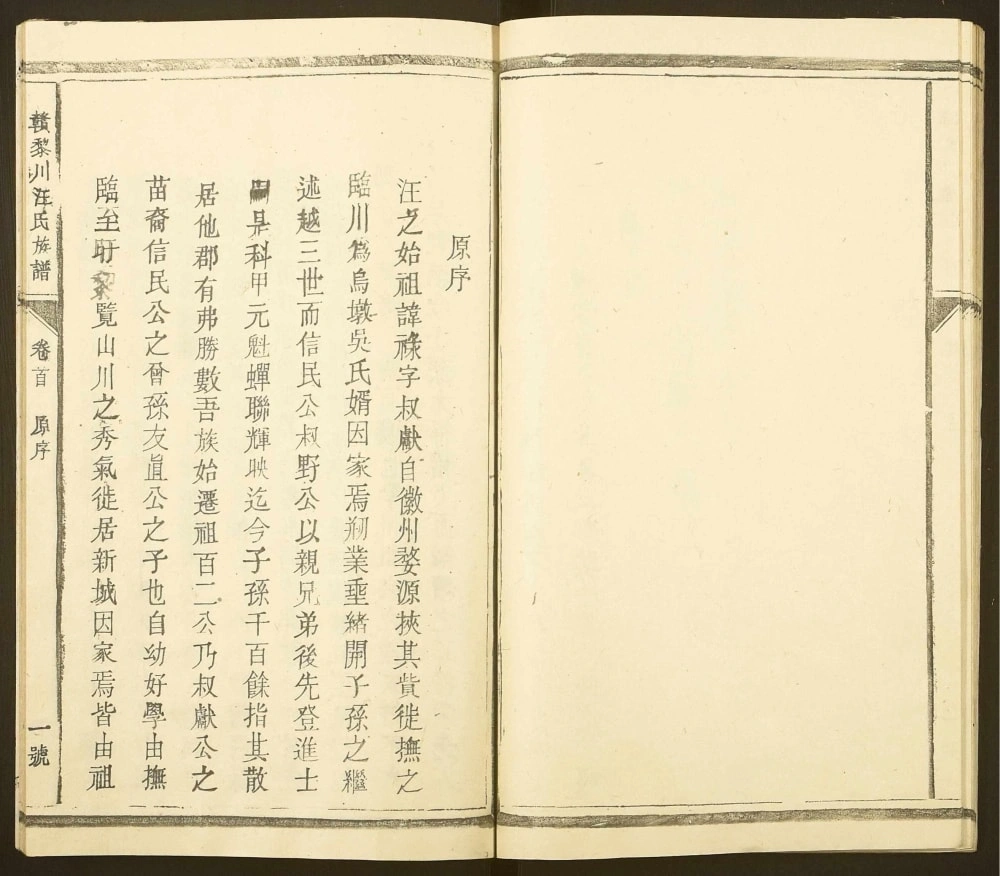 原序
汪之始祖諱祿字叔獻自徽州婺源挾其貲徙撫之
臨川爲烏墩吳氏婿因家焉剏業垂緒開子孫之繼
述越三世而信民公叔野公以親兄弟後先登進士
是科甲元魁蟬聯輝映迄今子孫千百餘指其散
居他郡有弗勝數吾族始遷祖百二公乃叔獻公之
苗裔信民公之曾孫友眞公之子也自幼好學由撫
臨至盱黎覽山川之秀氣徙居新城因家焉皆由祖
贛黎川汪氏族譜
卷首
原序
一號